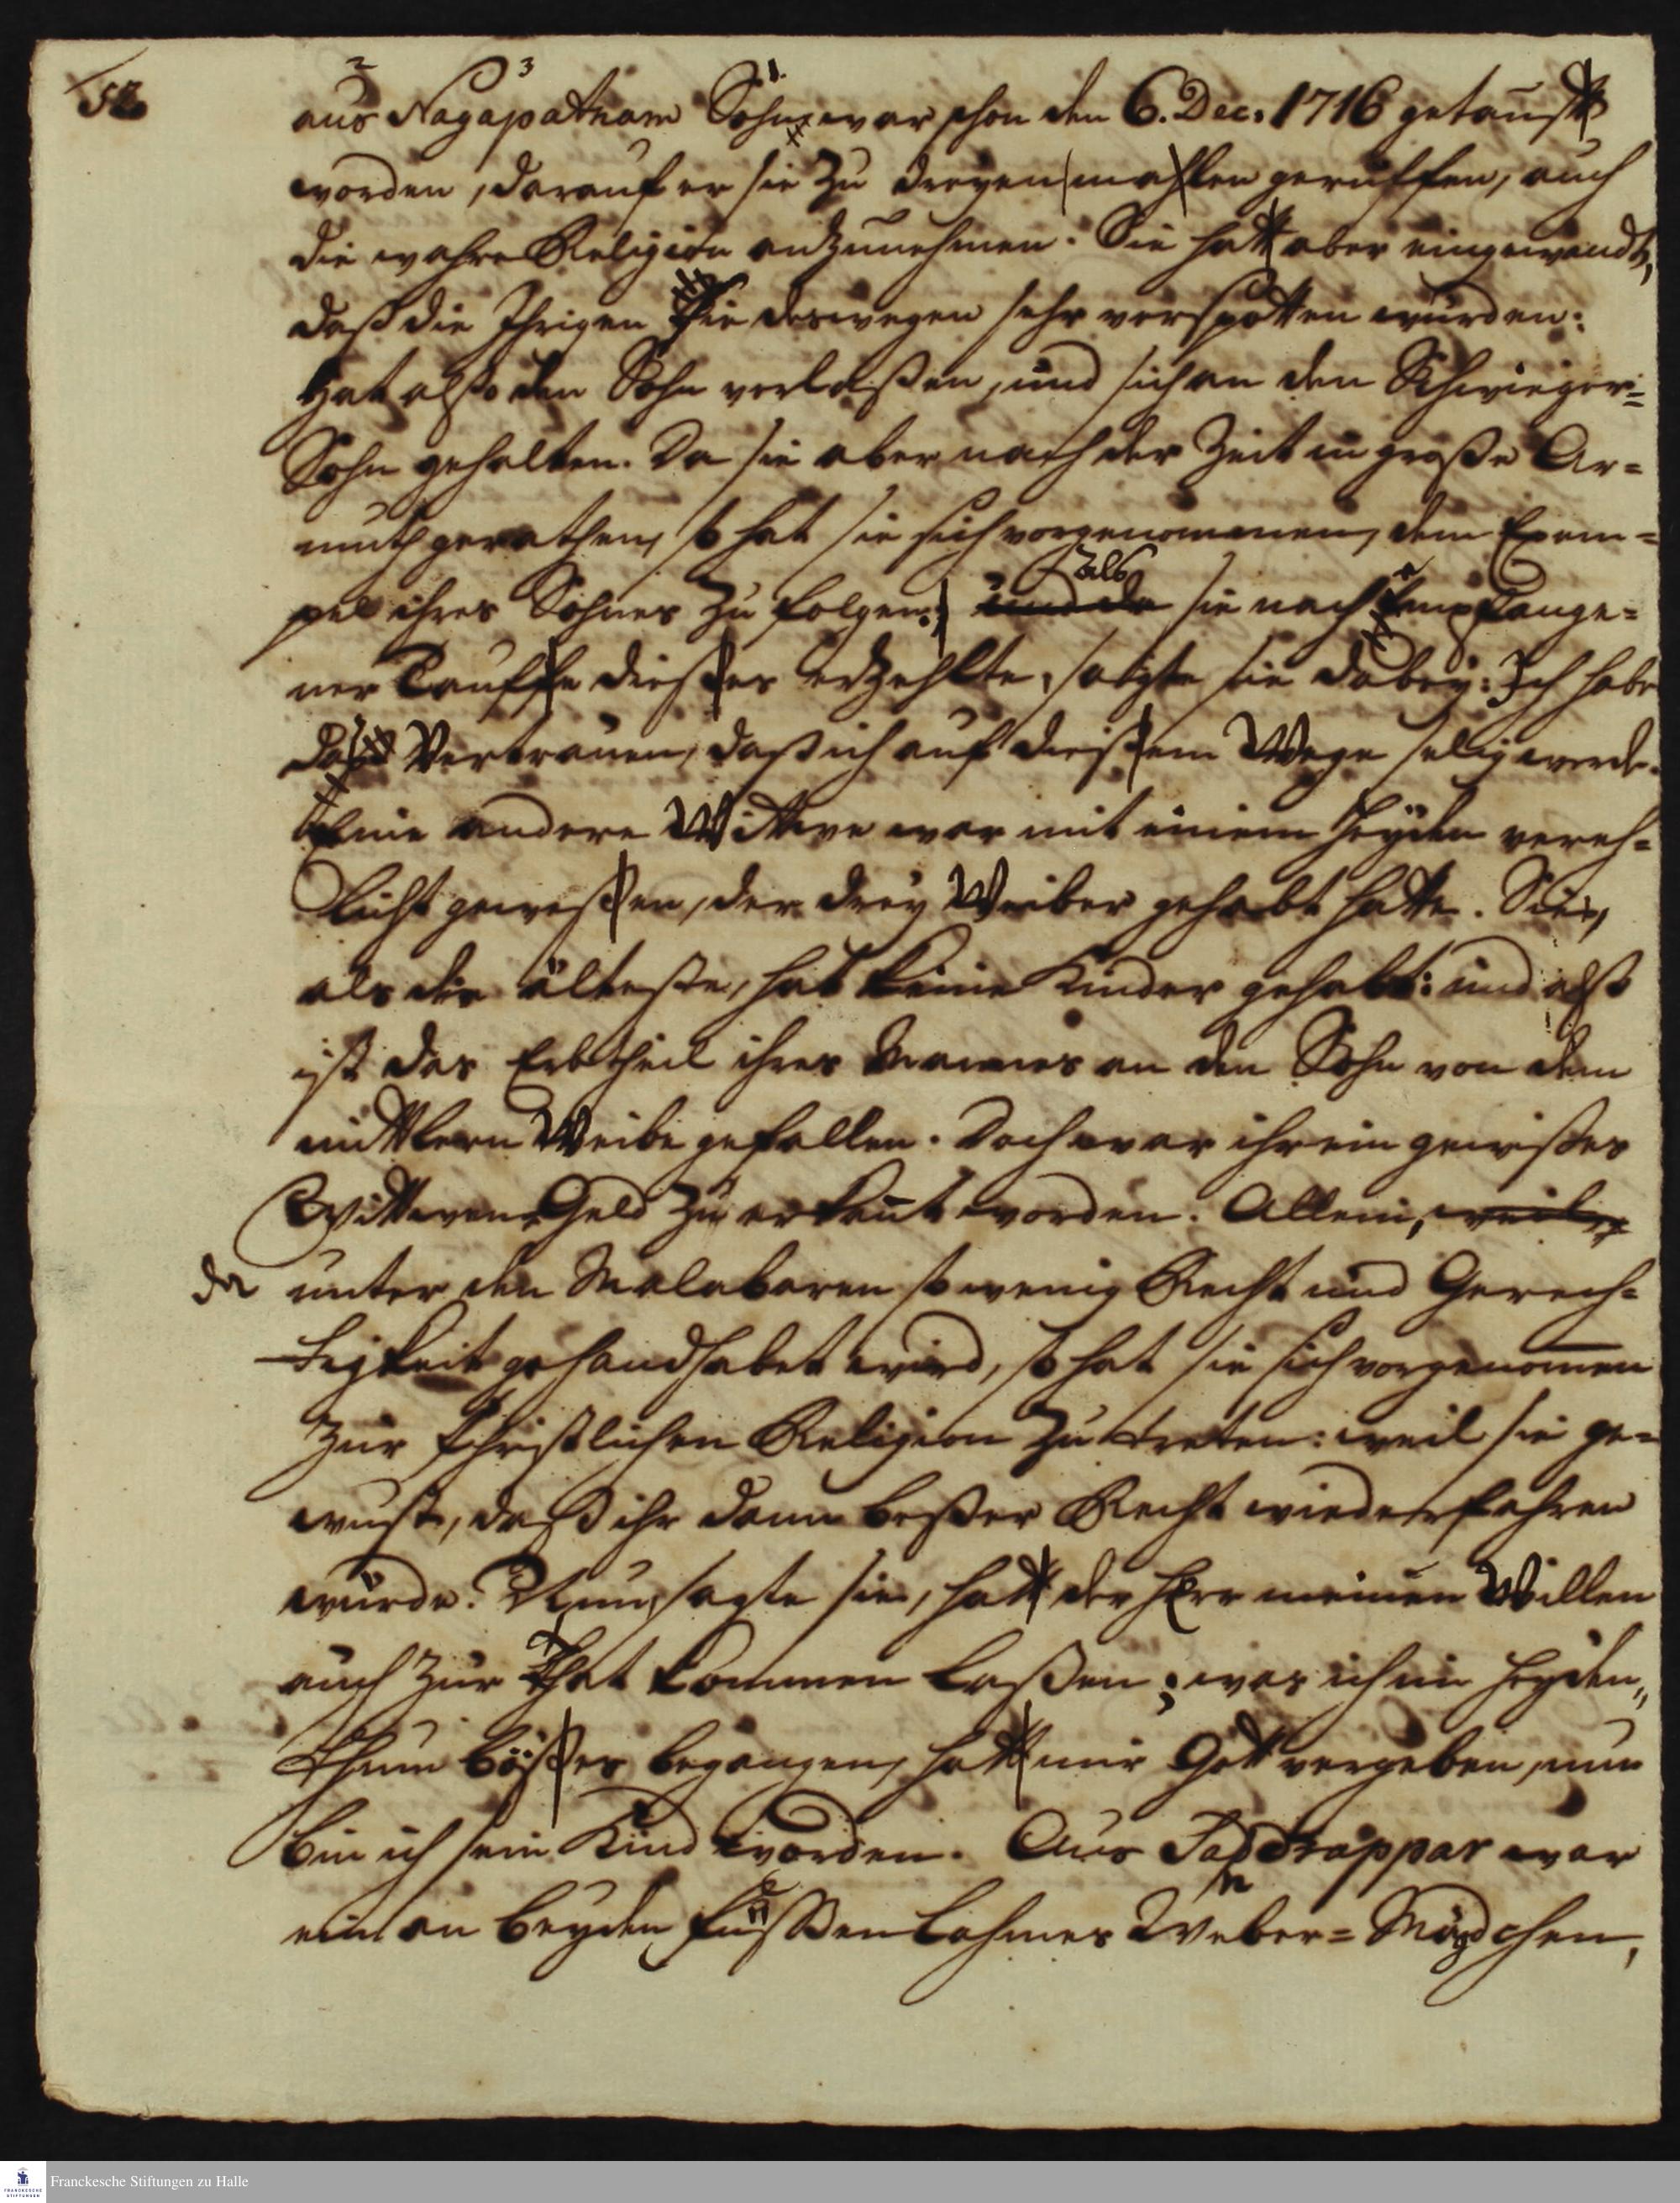 52.
aus Nagapatnam Sohn war schon den 6. Dec. 1716 getaufft
worden, darauf er sie zu dreyen mahlen geruffen, auch
die wahre Religion anzunehmen. Sie hatt aber eingewandt,
daß die Ihrigen Sie deswegen sehr verspotten würden:
Hat also den Sohn verlaßen, und sich an den Schwieger=
Sohn gehalten. Da sie aber nach der Zeit in große Ar=
muth gerathen, so hat sie sich vorgenommen, dem Exem=
pel ihres Sohnes zu folgen. und da als sie nach Empfange=
ner Tauffe dießes erzehlte, sagte sie dabey: Ich habe
das Vertrauen, daß ich auf dießem Wege selig werde.
Eine andere Wittwe war mit einem Heyden vereh=
licht geweßen, der drey Weiber gehabt hatte. Sie,
als die älteste, hat keine Kinder gehabt: und also
ist das Erbtheil ihres Mannes an den Sohn von dem
mittlern Weibe gefallen. Doch war ihr ein gewißes
Wittwen Geld zu erkant worden. Allein, weil
da unter den Malabaren so wenig Recht und Gerech=
tigkeit gehandhabet wird, so hat sie sich vorgenommen
zur Christlichen Religion zu treten: weil sie ge=
wust, daß ihr dann beßer Recht wiederfahren
würde. Nun, sagte sie, hatt der HErr meinen Willen
auch zur That kommen laßen; was ich im Heyden=
thum bößes begangen, hatt mir Gott vergeben, nun
bin ich sein Kind worden. Aus war
ein an beyden füssen lahmes Weber= Mädchen,
Franckesche Stiftungen zu Halle